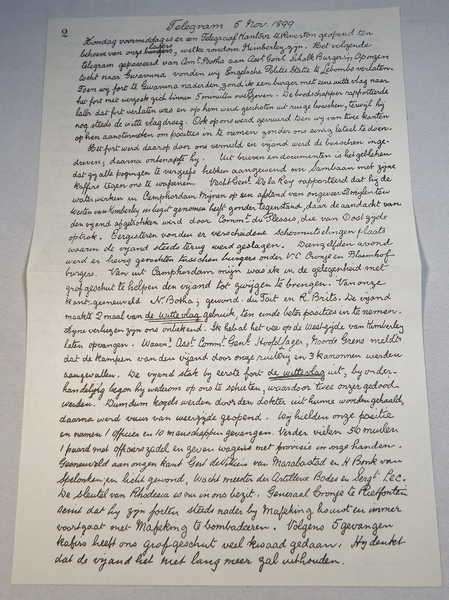 2
Telegram 5 Nov. 1899
Zondag voormiddag is er een Telegraaf Kantoor te Riverton geopend ten
behoeve van onze burgers, welke rondom Kimberley zyn. Het volgende
lagers
telegram geparseerd van Asst. Botha aan Asst Genl. Schalk Burger:, Op mijn
tocht naar Lwanna vonden wy Engelsche Politie Statie te Lehombo verlaten.
Toen wy fort te nadarden, zond ik een burger met eene witte vlag naar
het fort met verzoek zich binnen 5 minuten over te geven. De boodschapper rapporteerde
later dat fort verlaten was en op hem werd geschoten uit ruige bosschen, terwyl hy
nog steeds de witte vlag droeg. Ook op ons werd gevuurd toen wy van twee kanten
op hen aanstormden om posities in te nemen zonder ons eenig letsel te doen.
Het fort werd daarop door ons vernield en vyand werd de bosschen inge-
dreven, daarna ontsnapte hy. Uit brieven en documenten is het gebleken
dat zy alle pogingen te vergeefs hebben aangewend om Sambaan met zyne
Kaffers tegen ons te wapenen. Vecht Genl. De la Rey rapporteerd dat hy de
waterwerken in Camphordam Mijnen op een afstand van ongeveer 2 mylen ten
Westen van Kimberley in bezit genomen heeft zonder tegenstand, daar de aandacht van
den vijand afgetrokken werd door Commt. du Plessis, die van Oostzyde
optrok. Eergisteren vonden er verscheidene schermutselingen plaats
waarin de vijand steeds terug werd geslagen. Denzelfden avond
werd er hevig gevochten tusschen burgers onder V.C Cronje en Bloemhof
burgers. Van uit Camphordam mijn was ik in de gelegenheid met
grofgeschut te helpen den vijand tot zwijgen te brengen. Van onze
kant gesneuveld N. Botha; gewond du Toit en R. Brits. De vijand
maakte 2 maal van de witte vlag gebruik, ten einde beter posities in te nemen.
Zyne verliezen zyn ons onbekend. Ik heb al het vee op de Westzyde van Kimberley
laten opvangen. Waarn. Asst. Commt. Genl. Hoofdlager, Noorde Grens meldt
dat de Kampen van den vijand door onze ruitery in 3 kanonnen werden
aangevallen. De vijand stak by eerste fort de witte vlag uit, by onder-
handeling begon hy wederom op ons te schieten, waardoor twee onzer gedood
werden. Dumdum kogels werden door den dokter uit hunne wonden gehaald,
daarna werd vuur van weerzyde geopend. Wy hielden onze positie
en namen 1 officier en 10 manschappen gevangen. Verder vielen 50 muilen
1 paard met officierszadel en zeven wagens met provisie in onze handen.
Gesneuveld aan onzen kant Gert de Vries van Marabastad en H Bonk van
Spelonken, en licht gewond, Wacht meester der Artillerie Bodes en Sergt. Lee.
De sleutel van Rhodesia is nu in ons bezit. Generaal Cronje te Rietfontein
seint dat hy zyn forten steeds nader by Mafeking bouwt en immer
voortgaat met Mafeking te bombarderen. Volgens 5 gevangen
kafers heeft ons grofgeschut veel kwaad gedaan. Hy denkt
dat de vijand het niet lang meer zal uithouden.